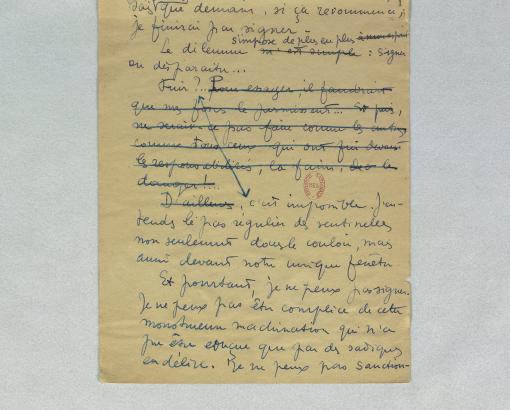 sais que demain, si ça recommence,
je finirai par signer.
s'impose de plus en plus
Le dilemme m'est simple : signer
ou disparaître...
Fuir ?... Pour essayer, il faudrait
que mes forces le permissent... Et puis,
ne serait-ce pas faire comme les autres
comme tous ceux qui ont fui devant
les responsabilités, la faim, le
danger !...
D'ailleurs, c'est impossible. J'en-
tends le pas régulier des sentinelles
non seulement dans le couloir, mais
aussi devant notre unique fenêtre
Et pourtant, je ne peux pas signer.
Je ne peux pas être complice de cette
monstrueuse machination qui n'a
pu être conçue que par des sadiques
en délire. Je ne peux pas sanction-